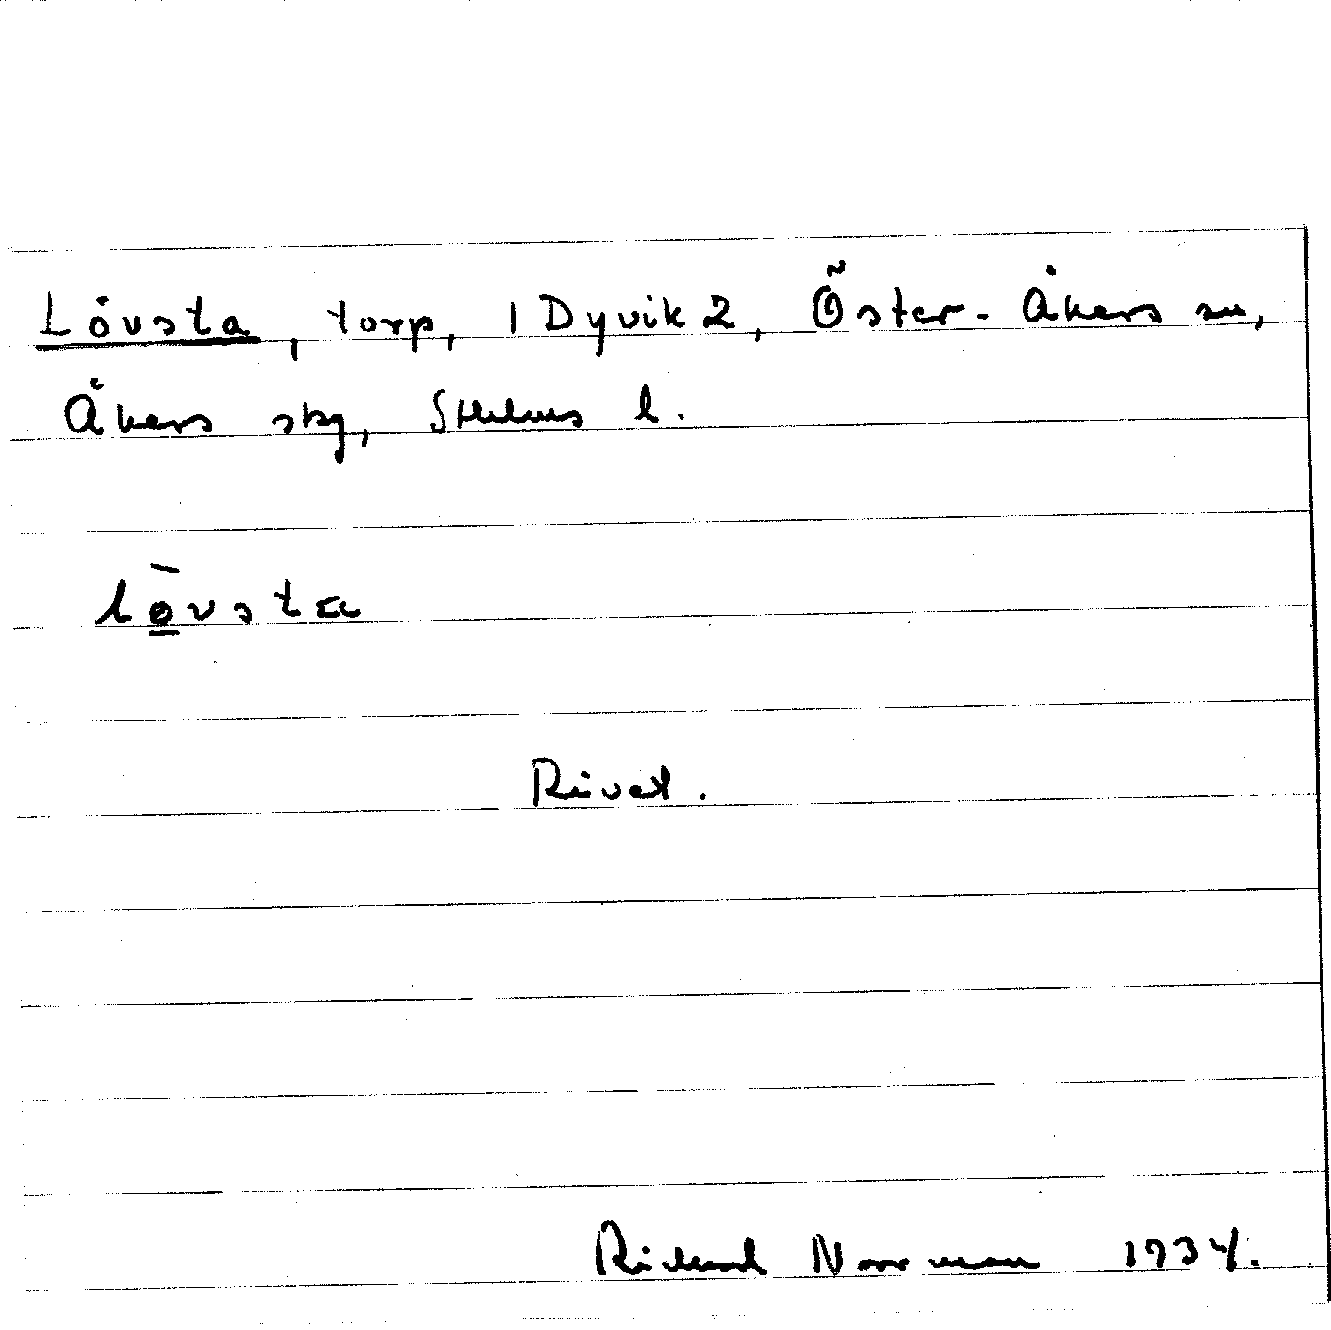 Lövsta, torp, 1 Dyvik 2, Öster-Åkers sn,
Åkers skg, Sthlms l.
lø̱̄vsta
Rivet.
Richard Norrman 1934.